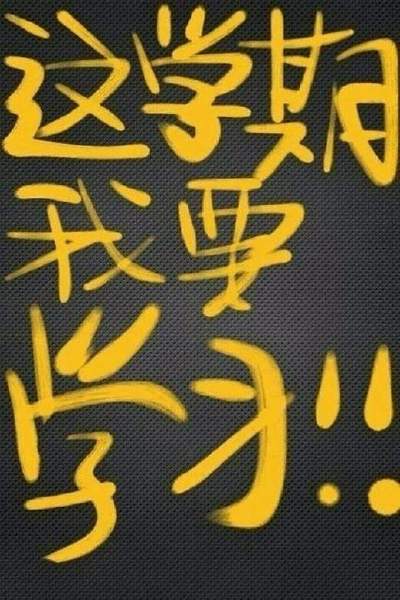 这学期
我要
学习!!